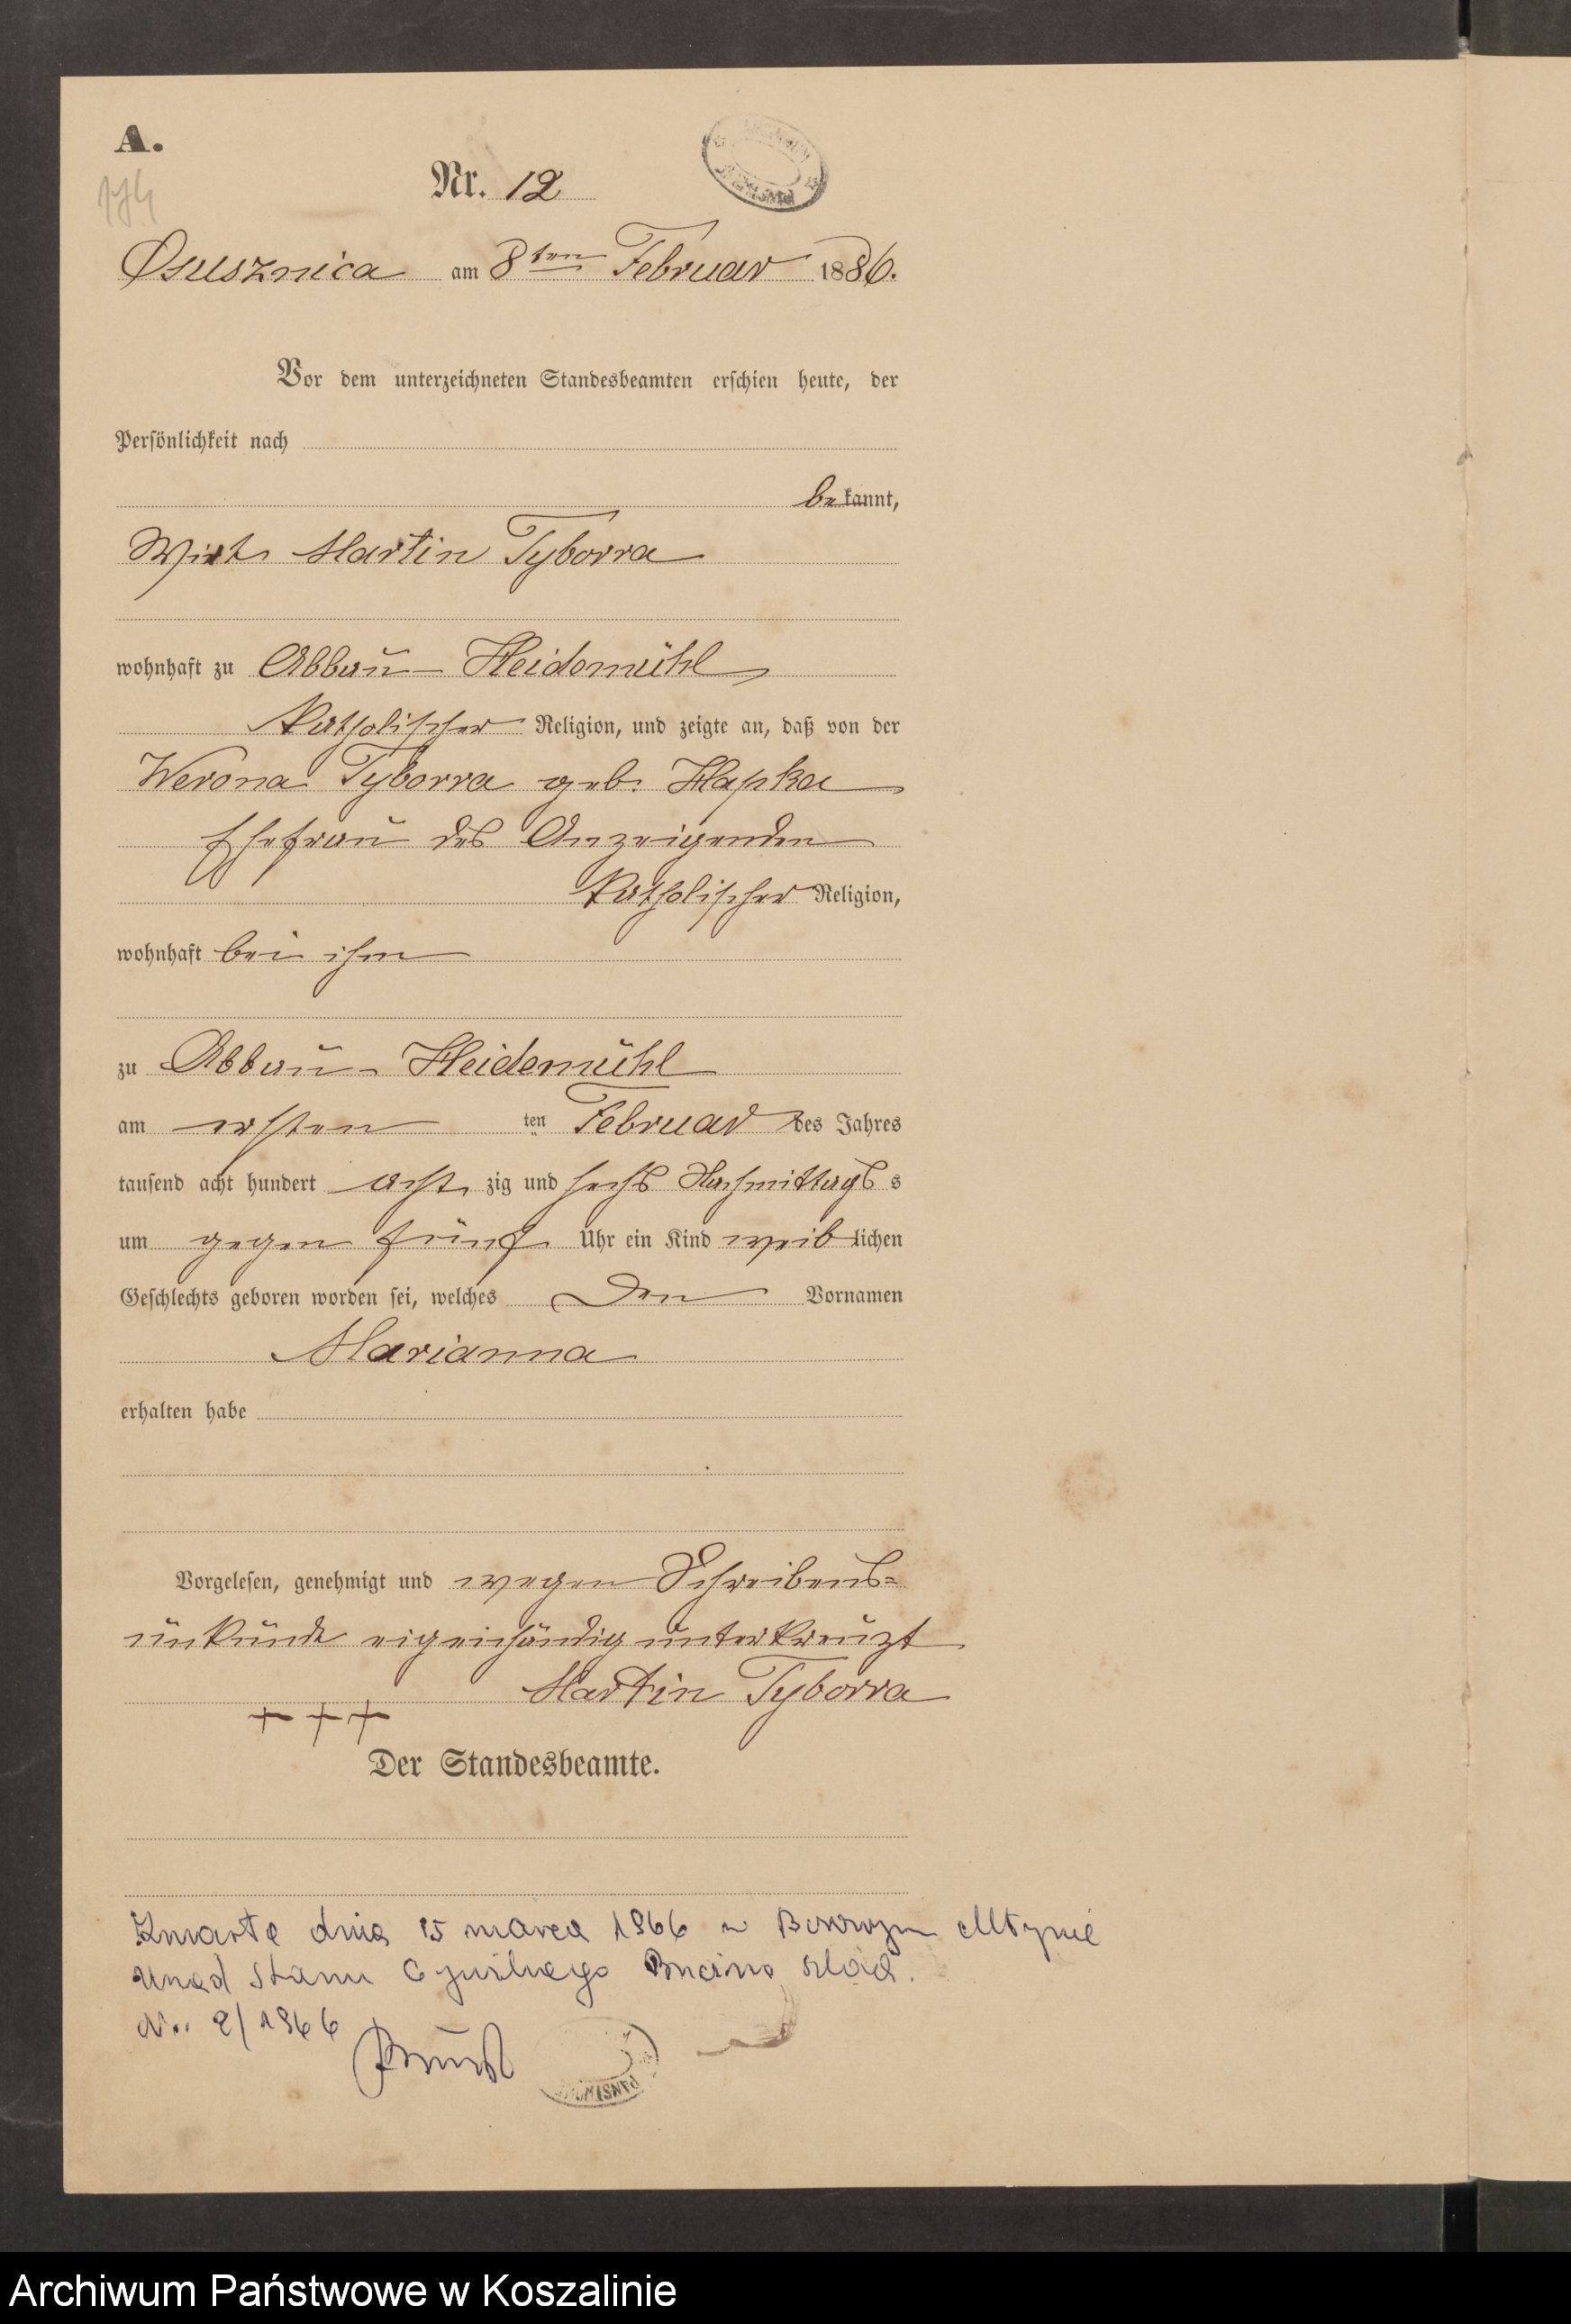 A.
Nr. 12
Osusznica am 8ten Februar 1886.
Vor dem unterzeichneten Standesbeamten erschien heute, der
Persönlichkeit nach
bekannt,
Wirth Martin Tyborra
wohnhaft zu Abbau-Heidemühl,
katholischer Religion, und zeigte an, daß von der
Werona Tyborra geb. Hapka
Ehefrau des Anzeigenden
katholischer Religion,
wohnhaft bei ihm
zu Abbau-Heidemühl
am ersten ten Februar des Jahres
tausend acht hundert acht zig und sechs Nachmittags s
um gegen fünf Uhr ein Kind weiblichen
Geschlechts geboren worden sei, welches den Vornamen
Marianna
erhalten habe
Vorgelesen, genehmigt und wegen Schreibens-
unkunde eigenhändig unterkreuzt
Martin Tyborra
+++
Der Standesbeamte.
Zmarła dnia 15 marca 1966 w Borowym Młynie
Urząd Stanu Cywilnego
Nr. 2/1966
Archiwum Państwowe w Koszalinie